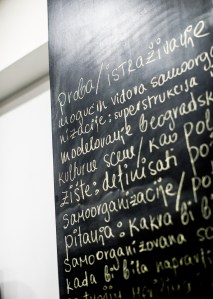 proba/istraživanje
mogućih vidova samoorga
nizacije: superstrukcija
modelovanje beogradsk
kulturne scene/kao pola
zište: definisati po
samoorganizacije/po
pitanja: kakva bi b
samoorganizovana sc
kada bi bila napravlj